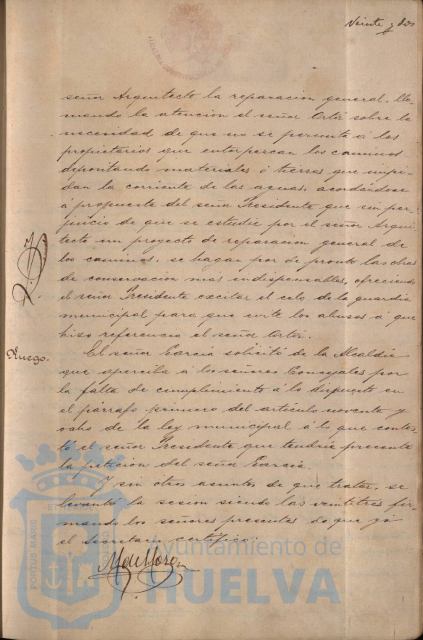 Veinte y dos
señor Arquitecto la reparacion general, lla-
mando la atencion el señor Ortiz sobre la
necesidad de que no se permita á los
propietarios que entorpezcan los caminos
depositando materiales ó tierras que impi-
dan la corriente de las aguas, acordándose
á propuesta del señor Presidente que sin per-
juicio de que se estudie por el señor Arqui-
tecto un proyecto de reparacion general de
los caminos, se hagan por de pronto las obras
de conservacion más indispensables, ofreciendo
el señor Presidente excitar el celo de la guardia
municipal para que evite los abusos á que
hizo referencia el señor Ortiz.
Ruego.
El señor Garcia solicitó de la Alcaldia
que aperciba á los señores Concejales por
la falta de cumplimiento á lo dispuesto en
el párrafo primero del articulo noventa y
ocho de la ley municipal á lo que contes-
tó el señor Presidente que tendria presente
la peticion del señor Garcia.
Y sin otros asuntos de que tratar, se
levantó la sesion siendo las veintitres fir-
mando los señores presentes de que yo
el Secretario certifico.
PORTUS MARIS
Ayuntamiento de
HUELVA